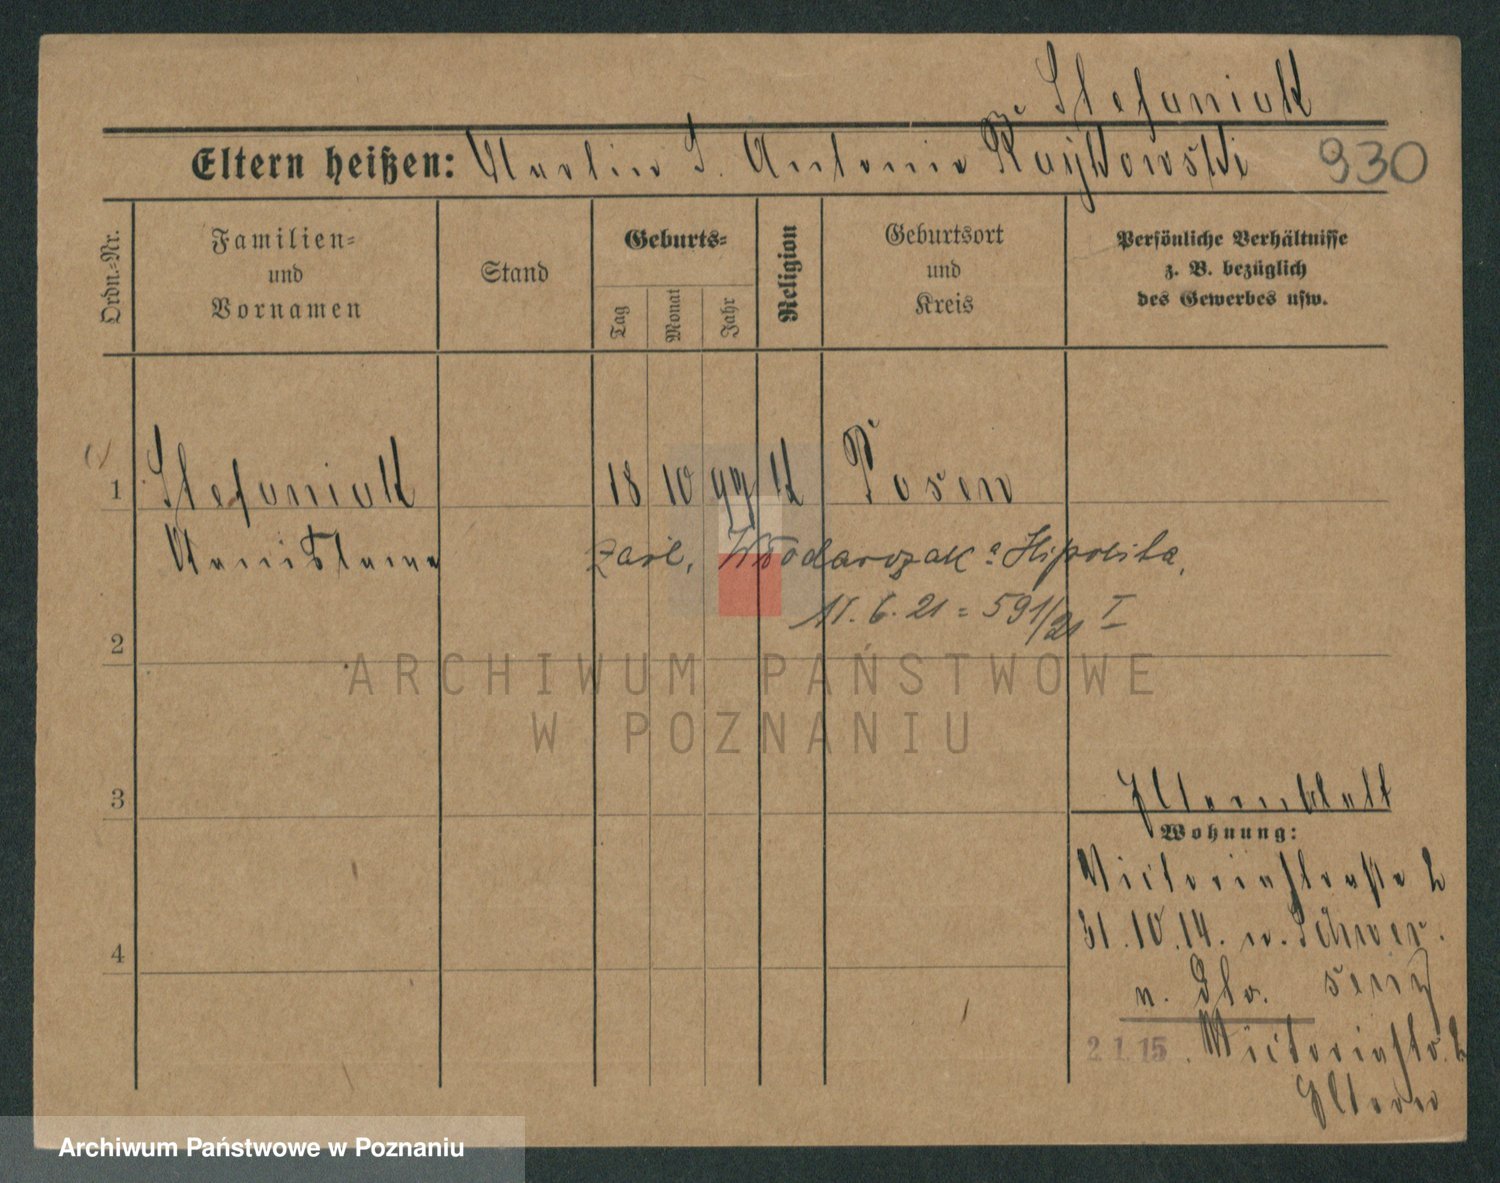 Stefaniak
Eltern heißen: Martin S. Antonie Raykowski
930
Ordn.-Nr.
Familien-
und
Vornamen
Stand
Geburts-
Tag
Monat
Jahr
Religion
Geburtsort
und
Kreis
Persönliche Verhältnisse
z. B. bezüglich
des Gewerbes usw.
1
Stefaniak 18 10 99 k Posen
zaśl. Włodarczak Hipolita,
11. 6. 21 = 591/21 I
2
ARCHIWUM PAŃSTWOWE
W POZNANIU
3
Elternblatt
Wohnung:
Victoriastraße 2
31.10.14. n. Schwer-
senz
4
n.
2.1.15. Victoriastr. 2
Eltern
Archiwum Państwowe w Poznaniu